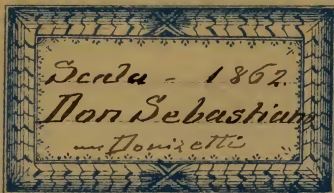 Scala - 1862.
Don Sebastiano
Donizetti